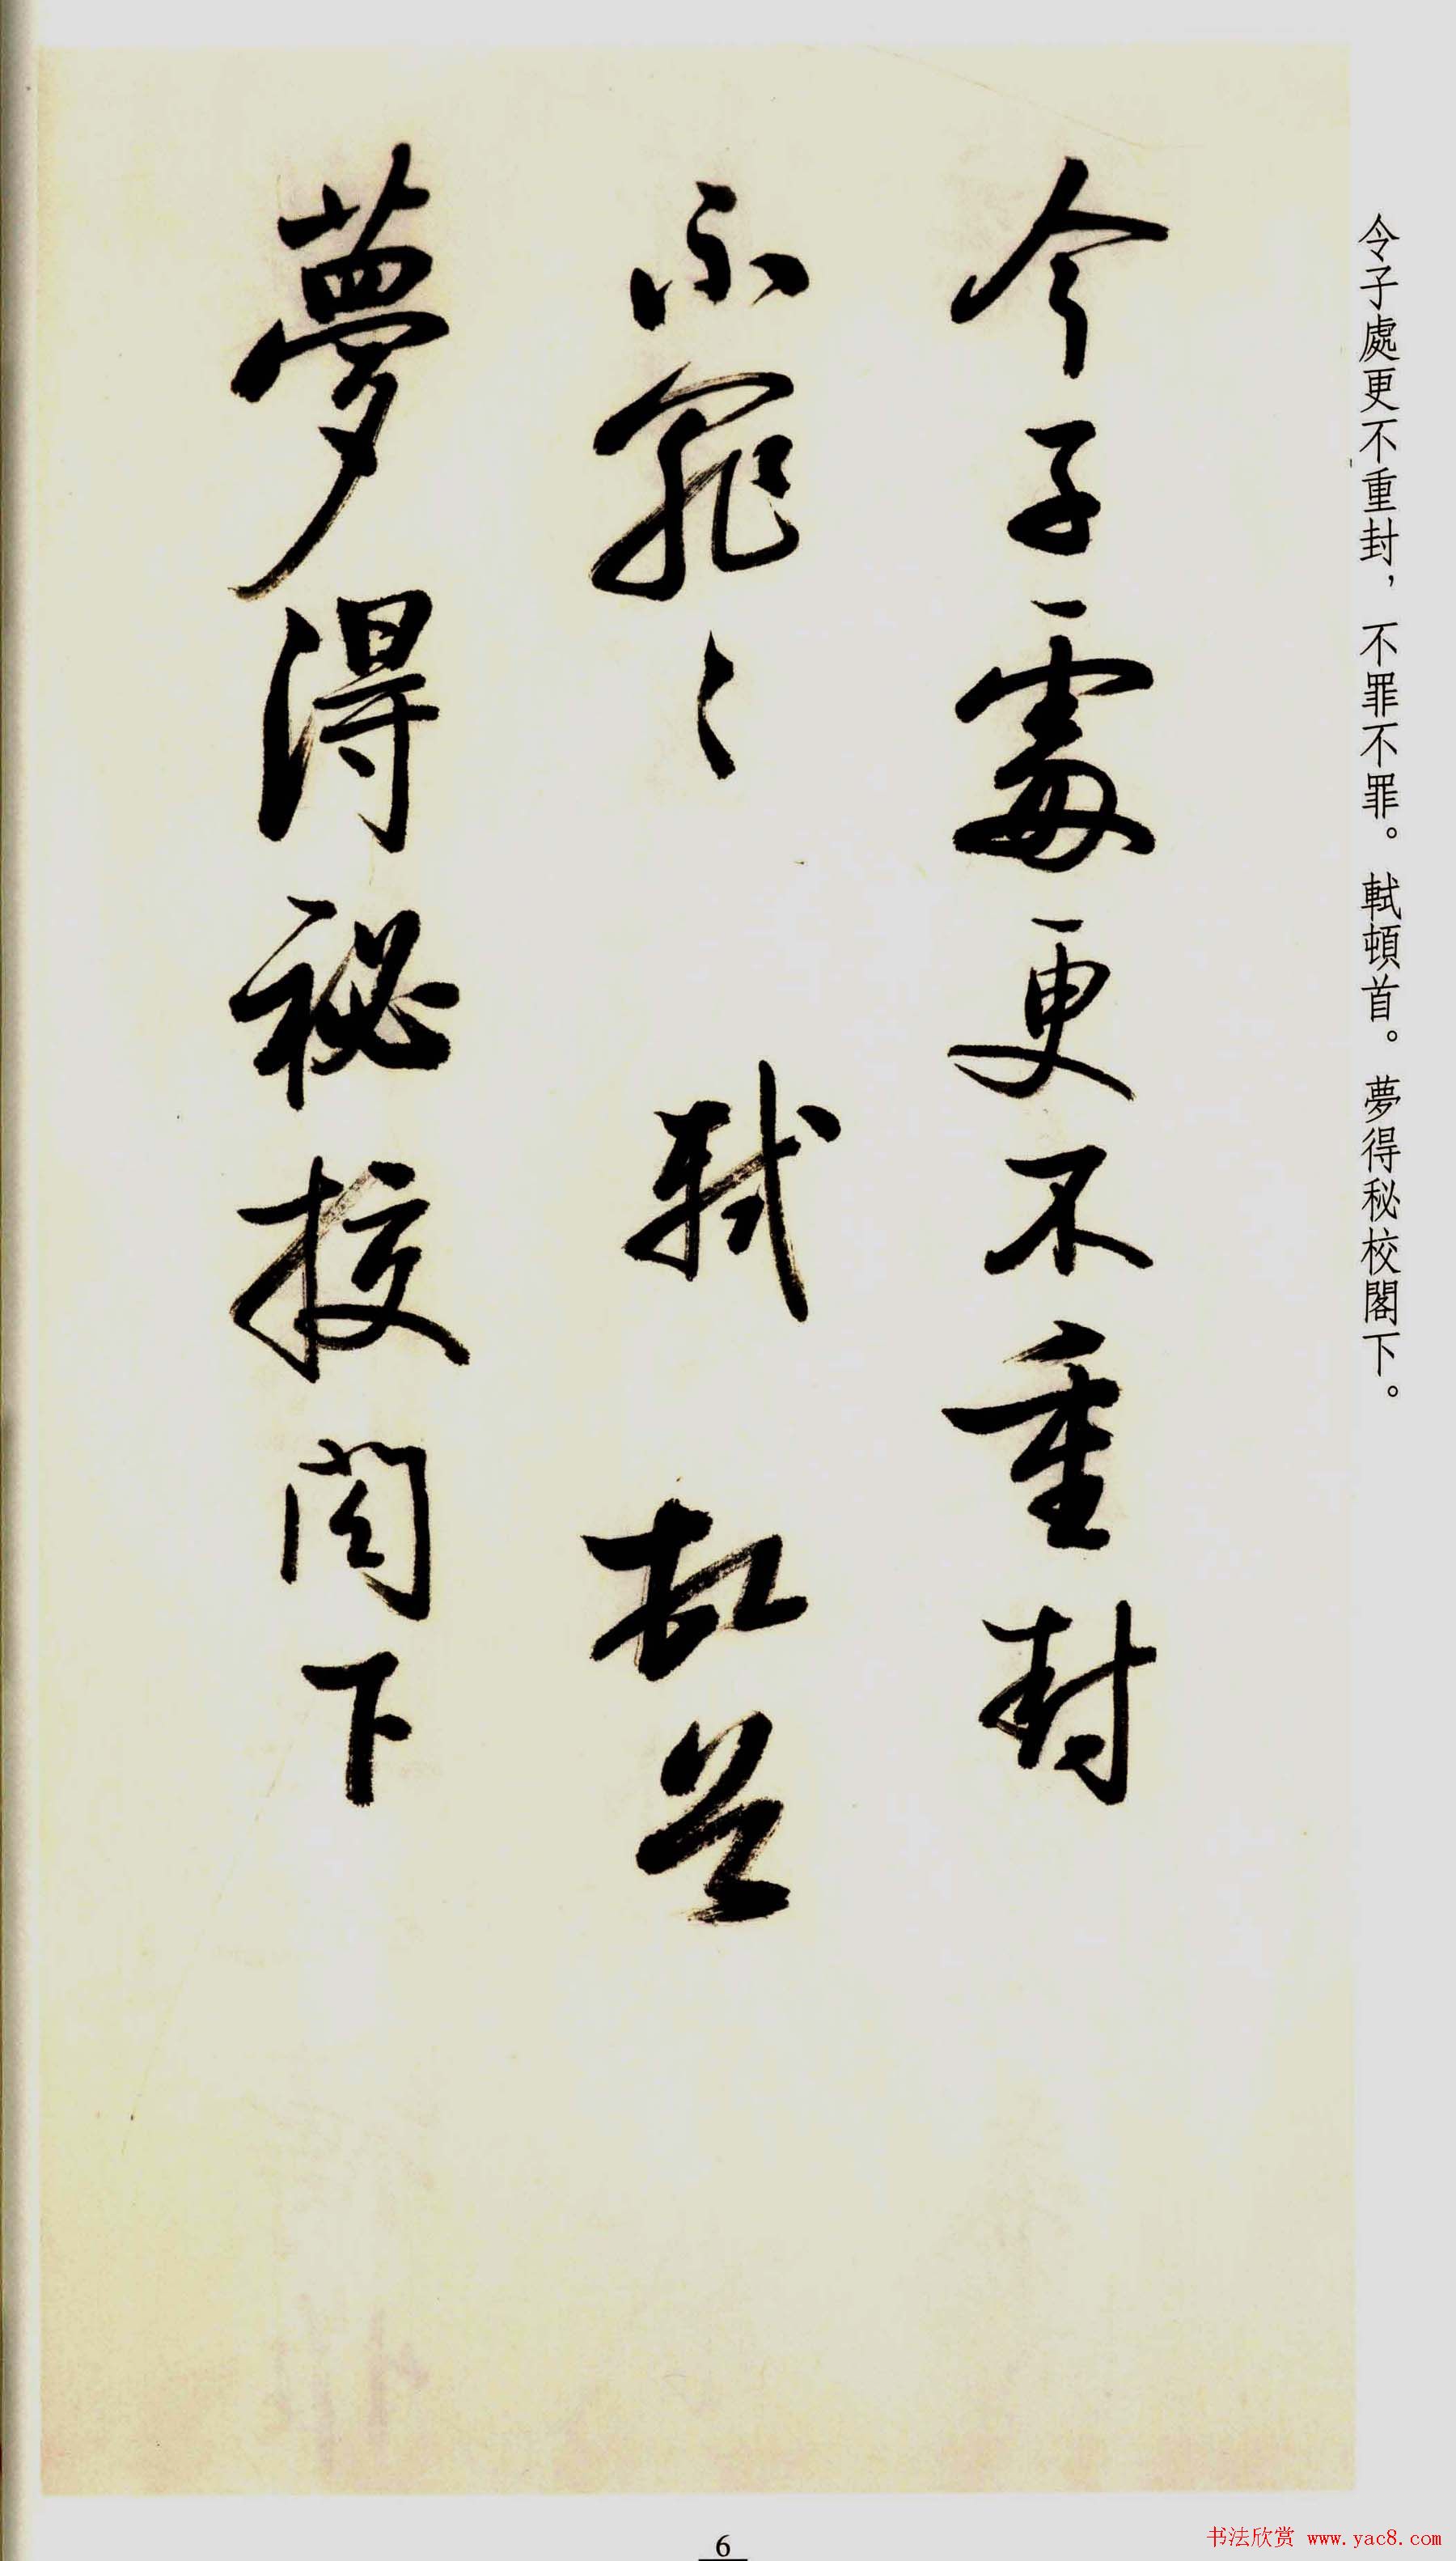 令子處更不重封，不罪不罪。軾頓首。夢得秘校閣下。
令子處更不重封
不罪〻　軾　頓首
夢得祕校閣下
6
书法欣赏 www.yac8.com